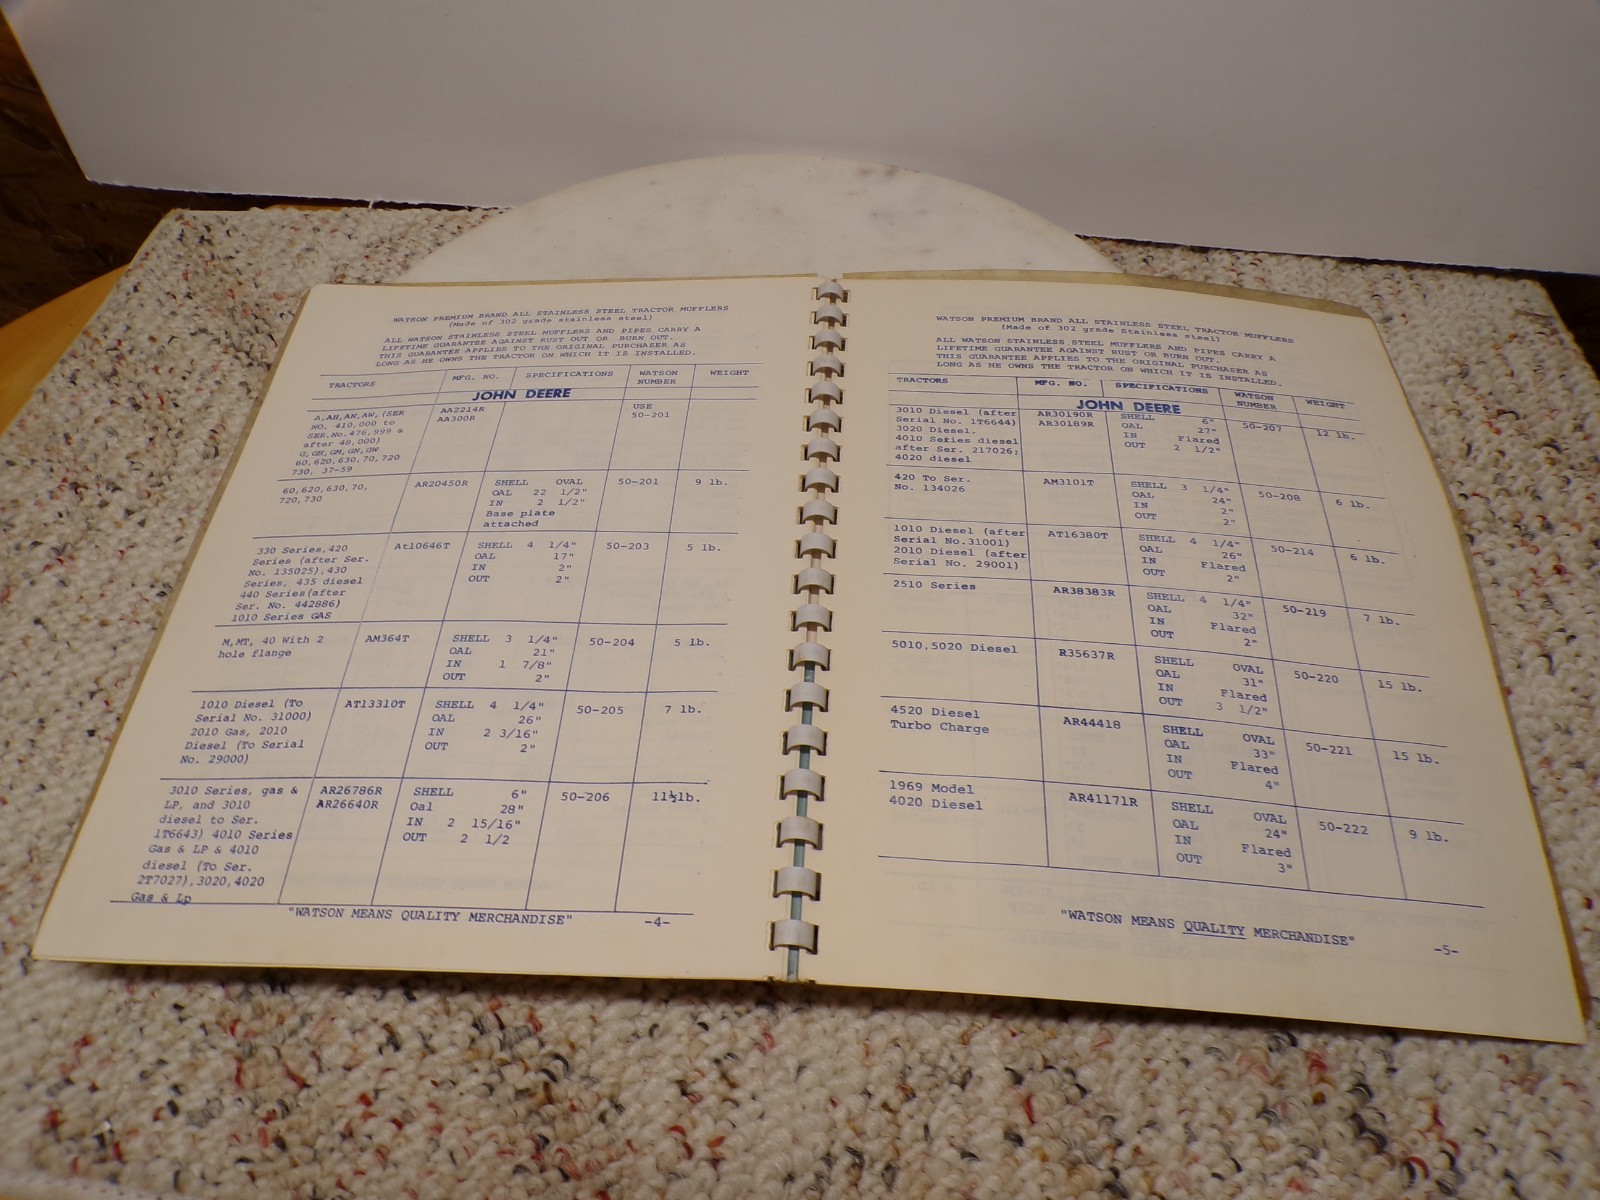 WATSON PREMIUM BRAND ALL STAINLESS STEEL TRACTOR MUFFLERS
(Made of 302 grade stainless steel)
ALL WATSON STAINLESS STEEL MUFFLERS AND PIPES CARRY A
LIFETIME GUARANTEE AGAINST RUST OUT OR BURN OUT.
THIS GUARANTEE APPLIES TO THE ORIGINAL PURCHASER AS
LONG AS HE OWNS THE TRACTOR ON WHICH IT IS INSTALLED.
TRACTORS MFG. NO. SPECIFICATIONS WATSON NUMBER WEIGHT
JOHN DEERE
A,AH,AN,AW, (SER AA2214R USE
NO. 410,000 to AA300R 50-201
SER.No.476,999 &
after 48,000)
G,GH,GM,GN,GW
60,620,630,70,720
730, 37-59
60,620,630,70, AR20450R SHELL OVAL 50-201 9 lb.
720,730 OAL 22 1/2"
IN 2 1/2"
Base plate
attached
330 Series,420 At10646T SHELL 4 1/4" 50-203 5 lb.
Series (after Ser. OAL 17"
No. 135025),430 IN 2"
Series, 435 diesel OUT 2"
440 Series(after
Ser. No. 442886)
1010 Series GAS
M,MT, 40 With 2 AM364T SHELL 3 1/4" 50-204 5 lb.
hole flange OAL 21"
IN 1 7/8"
OUT 2"
1010 Diesel (To AT13310T SHELL 4 1/4" 50-205 7 lb.
Serial No. 31000) OAL 26"
2010 Gas, 2010 IN 2 3/16"
Diesel (To Serial OUT 2"
No. 29000)
3010 Series, gas & AR26786R SHELL 6" 50-206 11½lb.
LP, and 3010 AR26640R Oal 28"
diesel to Ser. IN 2 15/16"
1T6643) 4010 Series OUT 2 1/2
Gas & LP & 4010
diesel (To Ser.
2T7027),3020,4020
Gas & Lp
"WATSON MEANS QUALITY MERCHANDISE" -4-
WATSON PREMIUM BRAND ALL STAINLESS STEEL TRACTOR MUFFLERS
(Made of 302 grade Stainless steel)
ALL WATSON STAINLESS STEEL MUFFLERS AND PIPES CARRY A
LIFETIME GUARANTEE AGAINST RUST OR BURN OUT.
THIS GUARANTEE APPLIES TO THE ORIGINAL PURCHASER AS
LONG AS HE OWNS THE TRACTOR ON WHICH IT IS INSTALLED.
TRACTORS MFG. NO. SPECIFICATIONS WATSON NUMBER WEIGHT
JOHN DEERE
3010 Diesel (after AR30190R SHELL 6" 50-207 12 lb.
Serial No. 1T6644) AR30189R OAL 27"
3020 Diesel. IN Flared
4010 Series diesel OUT 2 1/2"
after Ser. 217026;
4020 diesel
420 To Ser. AM3101T SHELL 3 1/4" 50-208 6 lb.
No. 134026 OAL 24"
IN 2"
OUT 2"
1010 Diesel (after AT16380T SHELL 4 1/4" 50-214 6 lb.
Serial No.31001) OAL 26"
2010 Diesel (after IN Flared
Serial No. 29001) OUT 2"
2510 Series AR38383R SHELL 4 1/4" 50-219 7 lb.
OAL 32"
IN Flared
OUT 2"
5010,5020 Diesel R35637R SHELL OVAL 50-220 15 lb.
OAL 31"
IN Flared
OUT 3 1/2"
4520 Diesel AR44418 SHELL OVAL 50-221 15 lb.
Turbo Charge OAL 33"
IN Flared
OUT 4"
1969 Model AR41171R SHELL OVAL 50-222 9 lb.
4020 Diesel OAL 24"
IN Flared
OUT 3"
"WATSON MEANS QUALITY MERCHANDISE" -5-